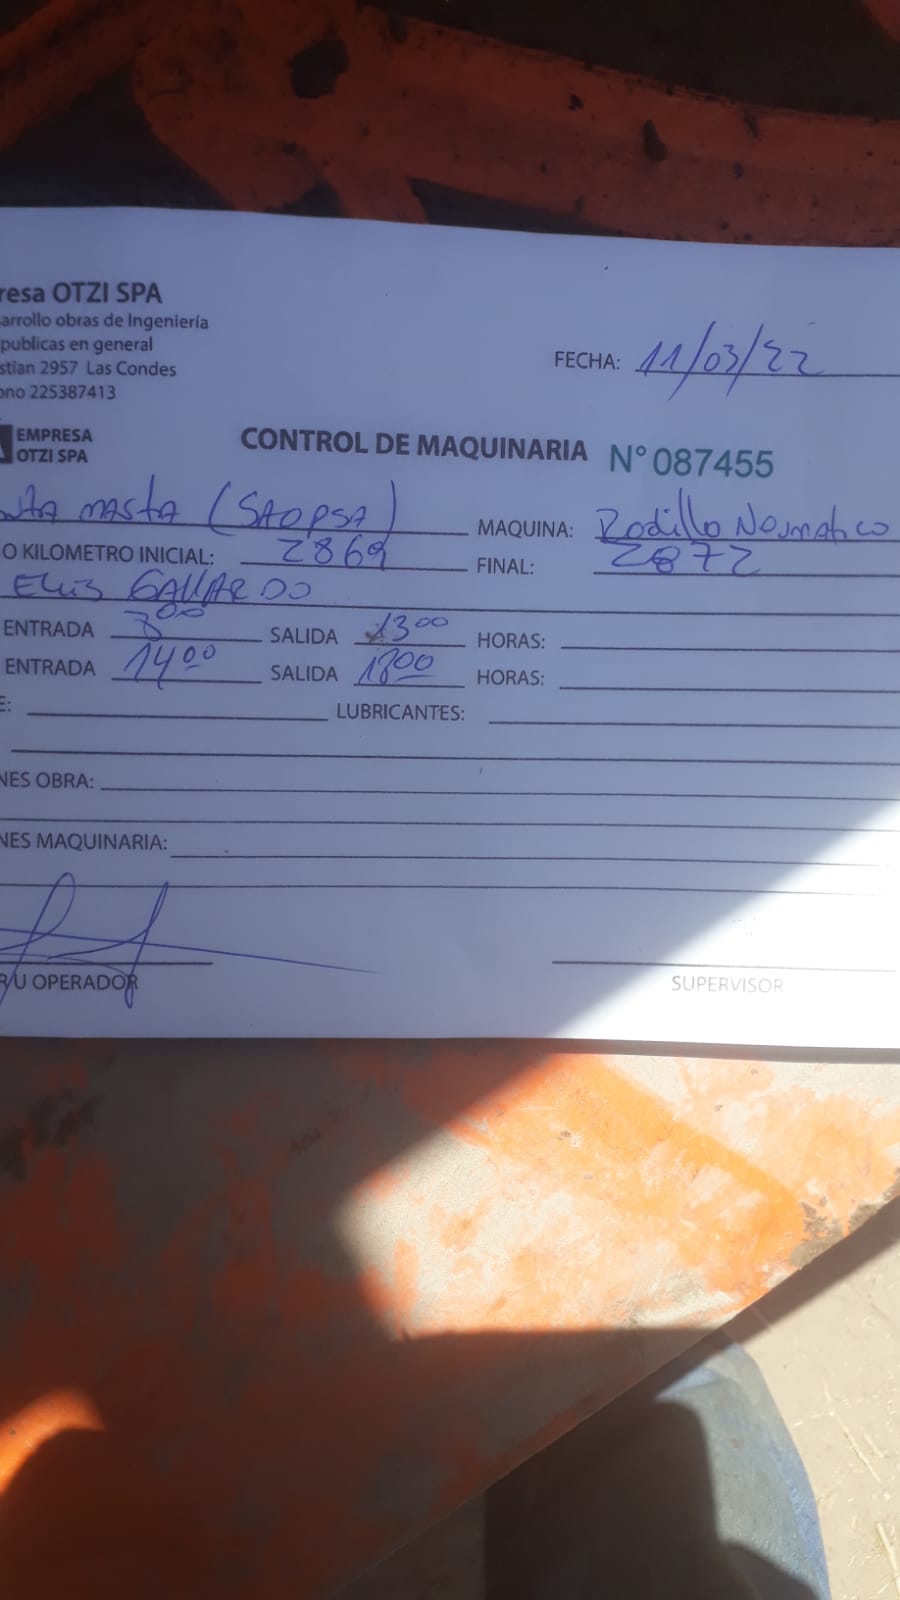 resa OTZI SPA
arrollo obras de Ingeniería
publicas en general
stian 2957 Las Condes
ono 225387413
FECHA: 11/03/22
EMPRESA
OTZI SPA
CONTROL DE MAQUINARIA N° 087455
MAQUINA: Rodillo Neumatico
O KILOMETRO INICIAL: 2869 FINAL: 2872
GALLARDO
ENTRADA 8:00 SALIDA 13:00 HORAS:
ENTRADA 14:00 SALIDA 18:00 HORAS:
E: LUBRICANTES:
NES OBRA:
NES MAQUINARIA:
R/U OPERADOR
SUPERVISOR